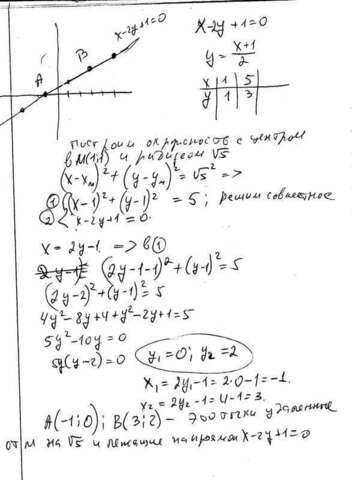 x-2y+1=0
B
A
x-2y+1=0
y = (x+1)/2
x | 1 | 5
y | 1 | 3
построим окружность с центром
в M(1;1) и радиусом √5
(x-xₘ)²+(y-yₘ)²=√5² =>
① {(x-1)²+(y-1)² = 5; решим совместное
② {x-2y+1=0.
x = 2y-1 => в ①
(2y-1-1)²+(y-1)²=5
(2y-2)²+(y-1)²=5
4y²-8y+4+y²-2y+1=5
5y²-10y=0
5y(y-2)=0 y₁=0; y₂=2
x₁=2y₁-1=2·0-1=-1.
x₂=2y₂-1=4-1=3.
A(-1;0); B(3;2) - это точки удаленные
от M на √5 и лежащие на прямой x-2y+1=0